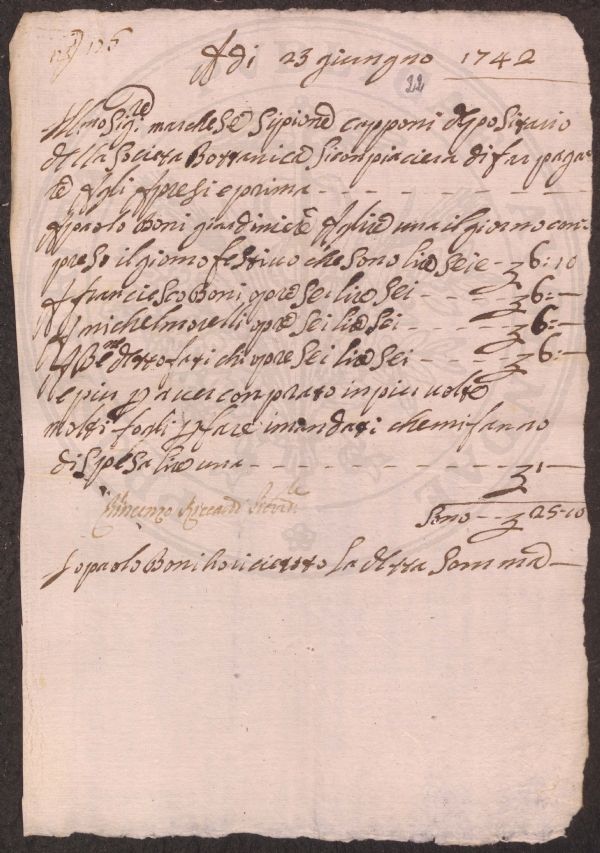 Adi 23 giungno 1742
22
Ill.mo Sig.re marchese Sipione capponi depositario
della Societa Bottanica Si conpiacera di far pagar
e gli apresi e prima
A paolo Boni giardiniere una il giorno con
preso il giorno festivo che sono lire sei e 6:10
A franciesco Boni opre sei lire sei 6:—
A michel morelli opre sei lire sei 6:—
A Be.to fatichi opre sei lire sei 6:—
e piu p aver conprato in piu volte
molti fogli p fare i mandati che mi fanno
di spesa lire una 1—
Vincenzo Riccardi
Sono 25-10
Io paolo Boni ho riceuto La detta Somma